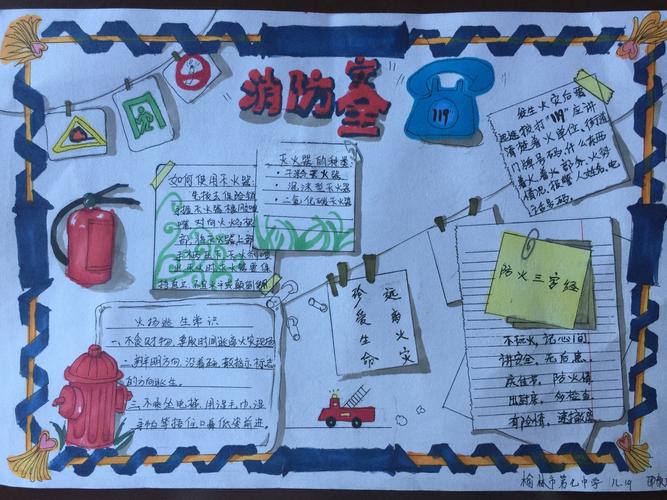 消防安全
119
发生火灾后要
迅速拨打"119"应讲
清楚着火单位、街道
门牌号码、什么东西
着火、着火部分、火势
情况、报警人姓名、电
话号码。
灭火器的种类
·干粉灭火器
·泡沫型灭火器
·二氧化碳灭火器
如何使用灭火器
先拔去保险销
手握灭火器橡胶喷
嘴,对向火焰根
部,将灭火器上部
珍爱生命
远离火灾
防火三字经
不玩火,记心间
讲安全,无后患
出厨房,勿检查
有险情,速撤离
火场逃生常识
一、不贪财物,争取时间逃离火灾现场
二、辨明方向,沿着疏散指示标志
的方向逃生。
三、不乘坐电梯,用湿毛巾、湿
手帕等捂住口鼻低姿前进。
榆林市第七中学 11.19